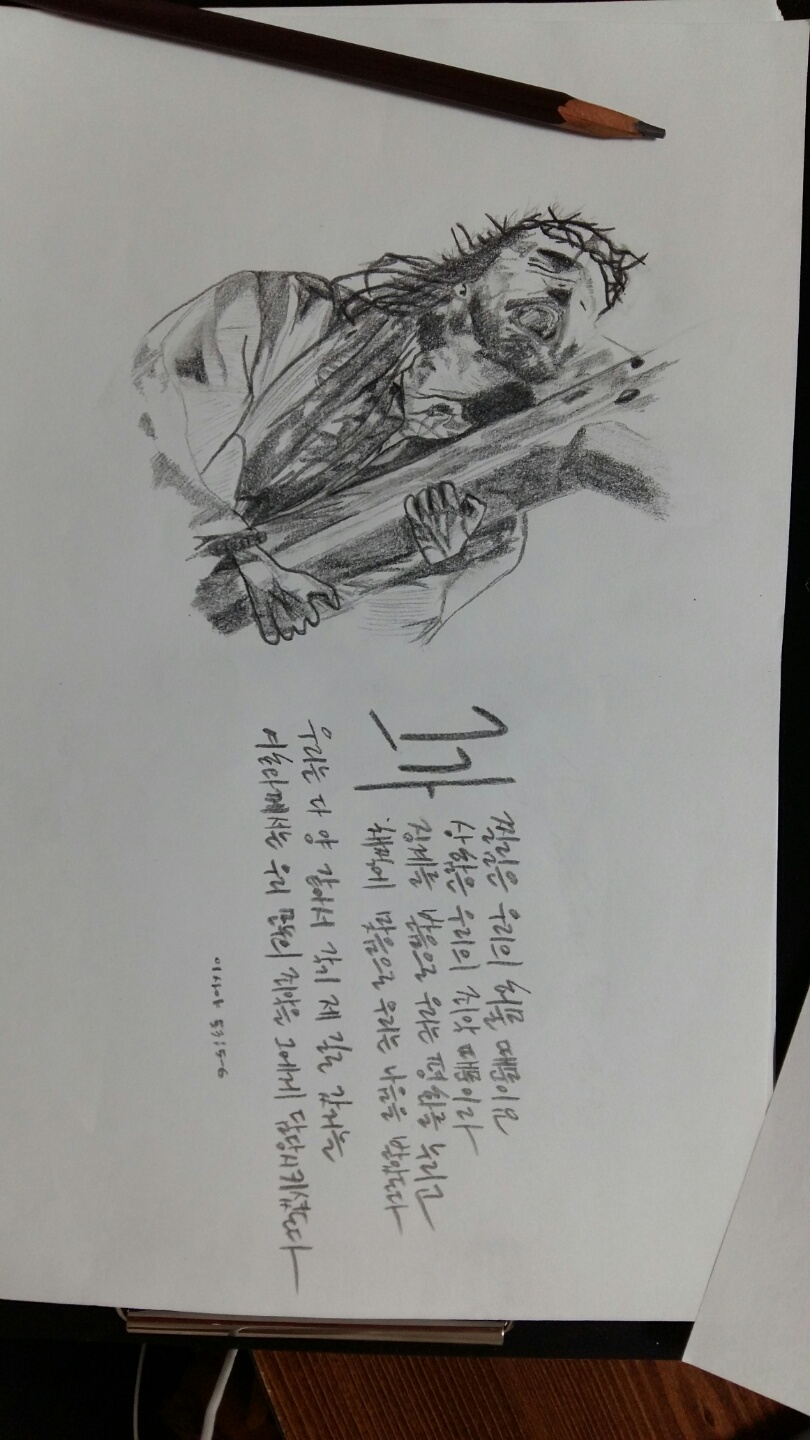 그가
찔림은 우리의 허물 때문이요
상함은 우리의 죄악 때문이라
징계를 받음으로 우리는 평화를 누리고
채찍에 맞음으로 우리는 나음을 받았도다
우리는 다 양 같아서 각기 제 길로 갔거늘
여호와께서는 우리 모두의 죄악을 그에게 담당시키셨도다
이사야 53:5-6